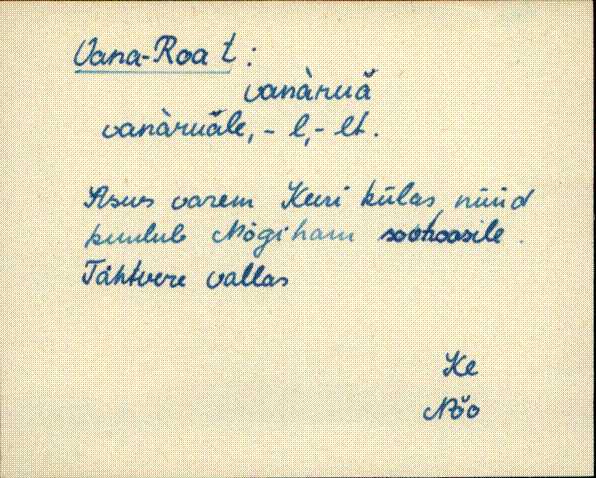 Vana-Roa t :
vanàruă
vanàruăle, - l, - lt.
Asus varem Keeri külas, nüüd
kuulub Nõgiham sovhoosile.
Tähtvere vallas
Ke
Nõo